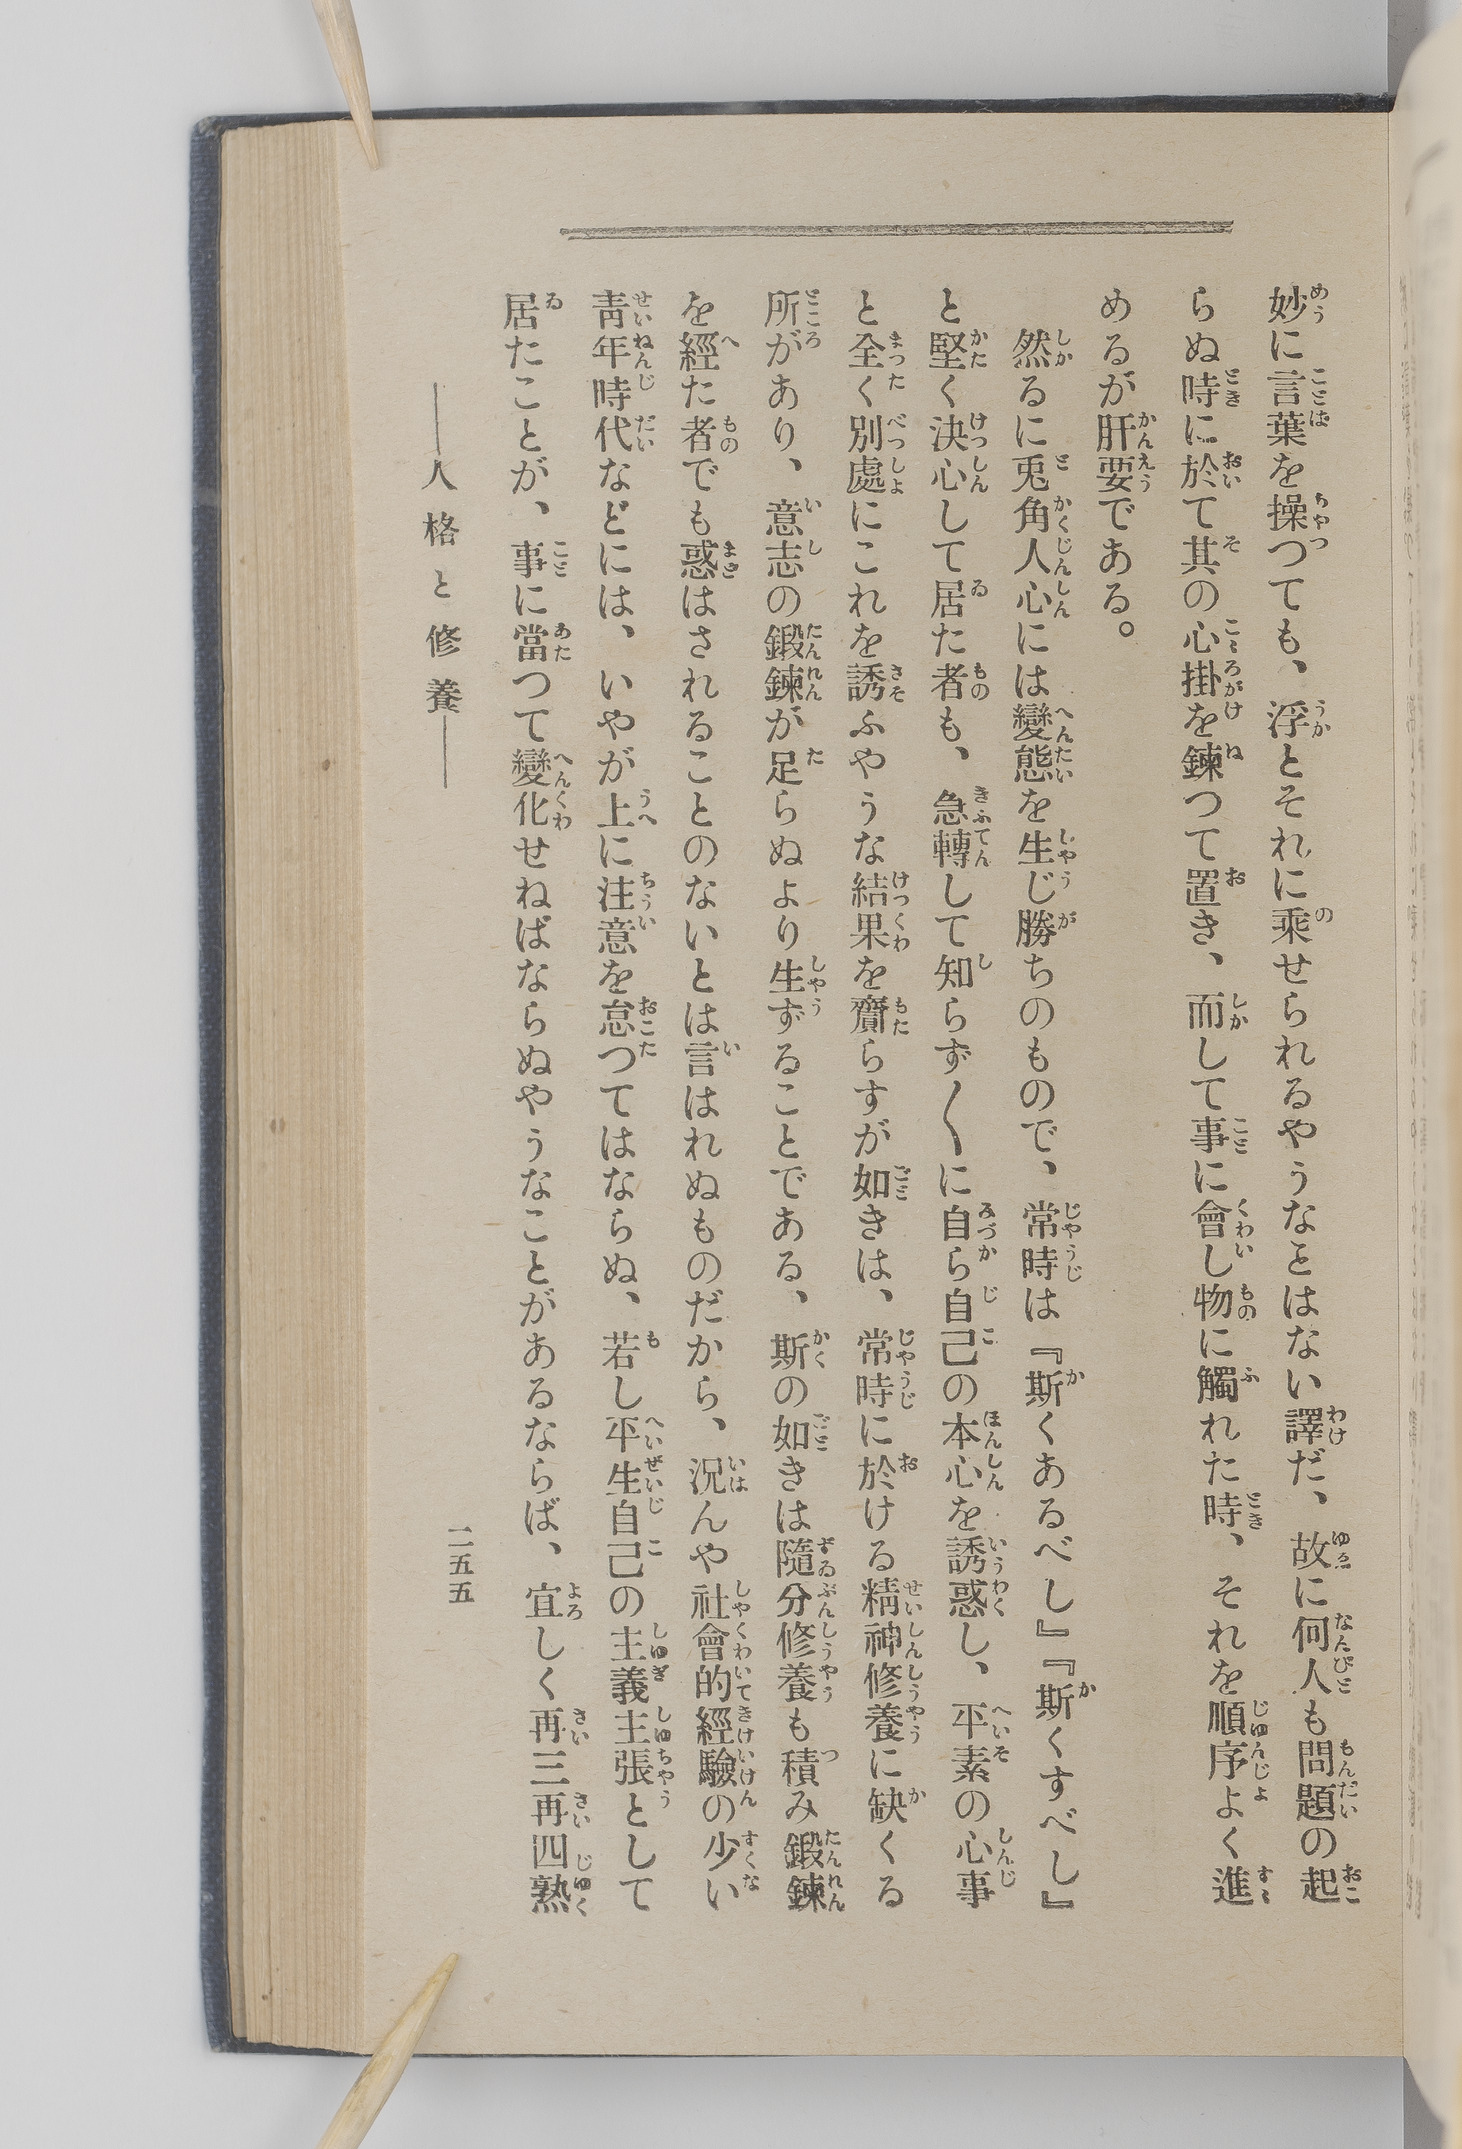 妙に言葉を操つても、浮とそれに乘せられるやうなとはない譯だ、故に何人も問題の起
らぬ時に於て其の心掛を鍊つて置き、而して事に會し物に觸れた時、それを順序よく進
めるが肝要である。
然るに兎角人心には變態を生じ勝ちのもので、常時は『斯くあるべし』『斯くすべし』
と堅く決心して居た者も、急轉して知らず〱に自ら自己の本心を誘惑し、平素の心事
と全く別處にこれを誘ふやうな結果を齎らすが如きは、常時に於ける精神修養に缺くる
所があり、意志の鍛鍊が足らぬより生ずることである、斯の如きは隨分修養も積み鍛鍊
を經た者でも惑はされることのないとは言はれぬものだから、況んや社會的經驗の少い
靑年時代などには、いやが上に注意を怠つてはならぬ、若し平生自己の主義主張として
居たことが、事に當つて變化せねばならぬやうなことがあるならば、宜しく再三再四熟
――人格と修養――
二五五